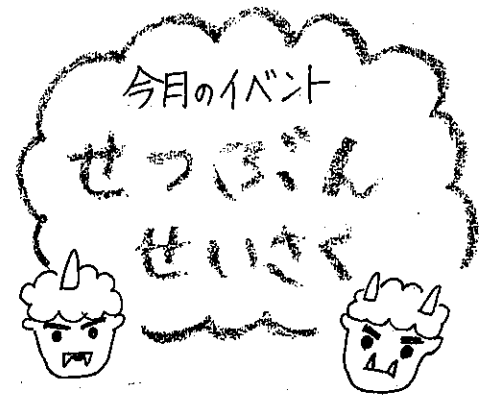 今月のイベント
せつぶん
せいさく